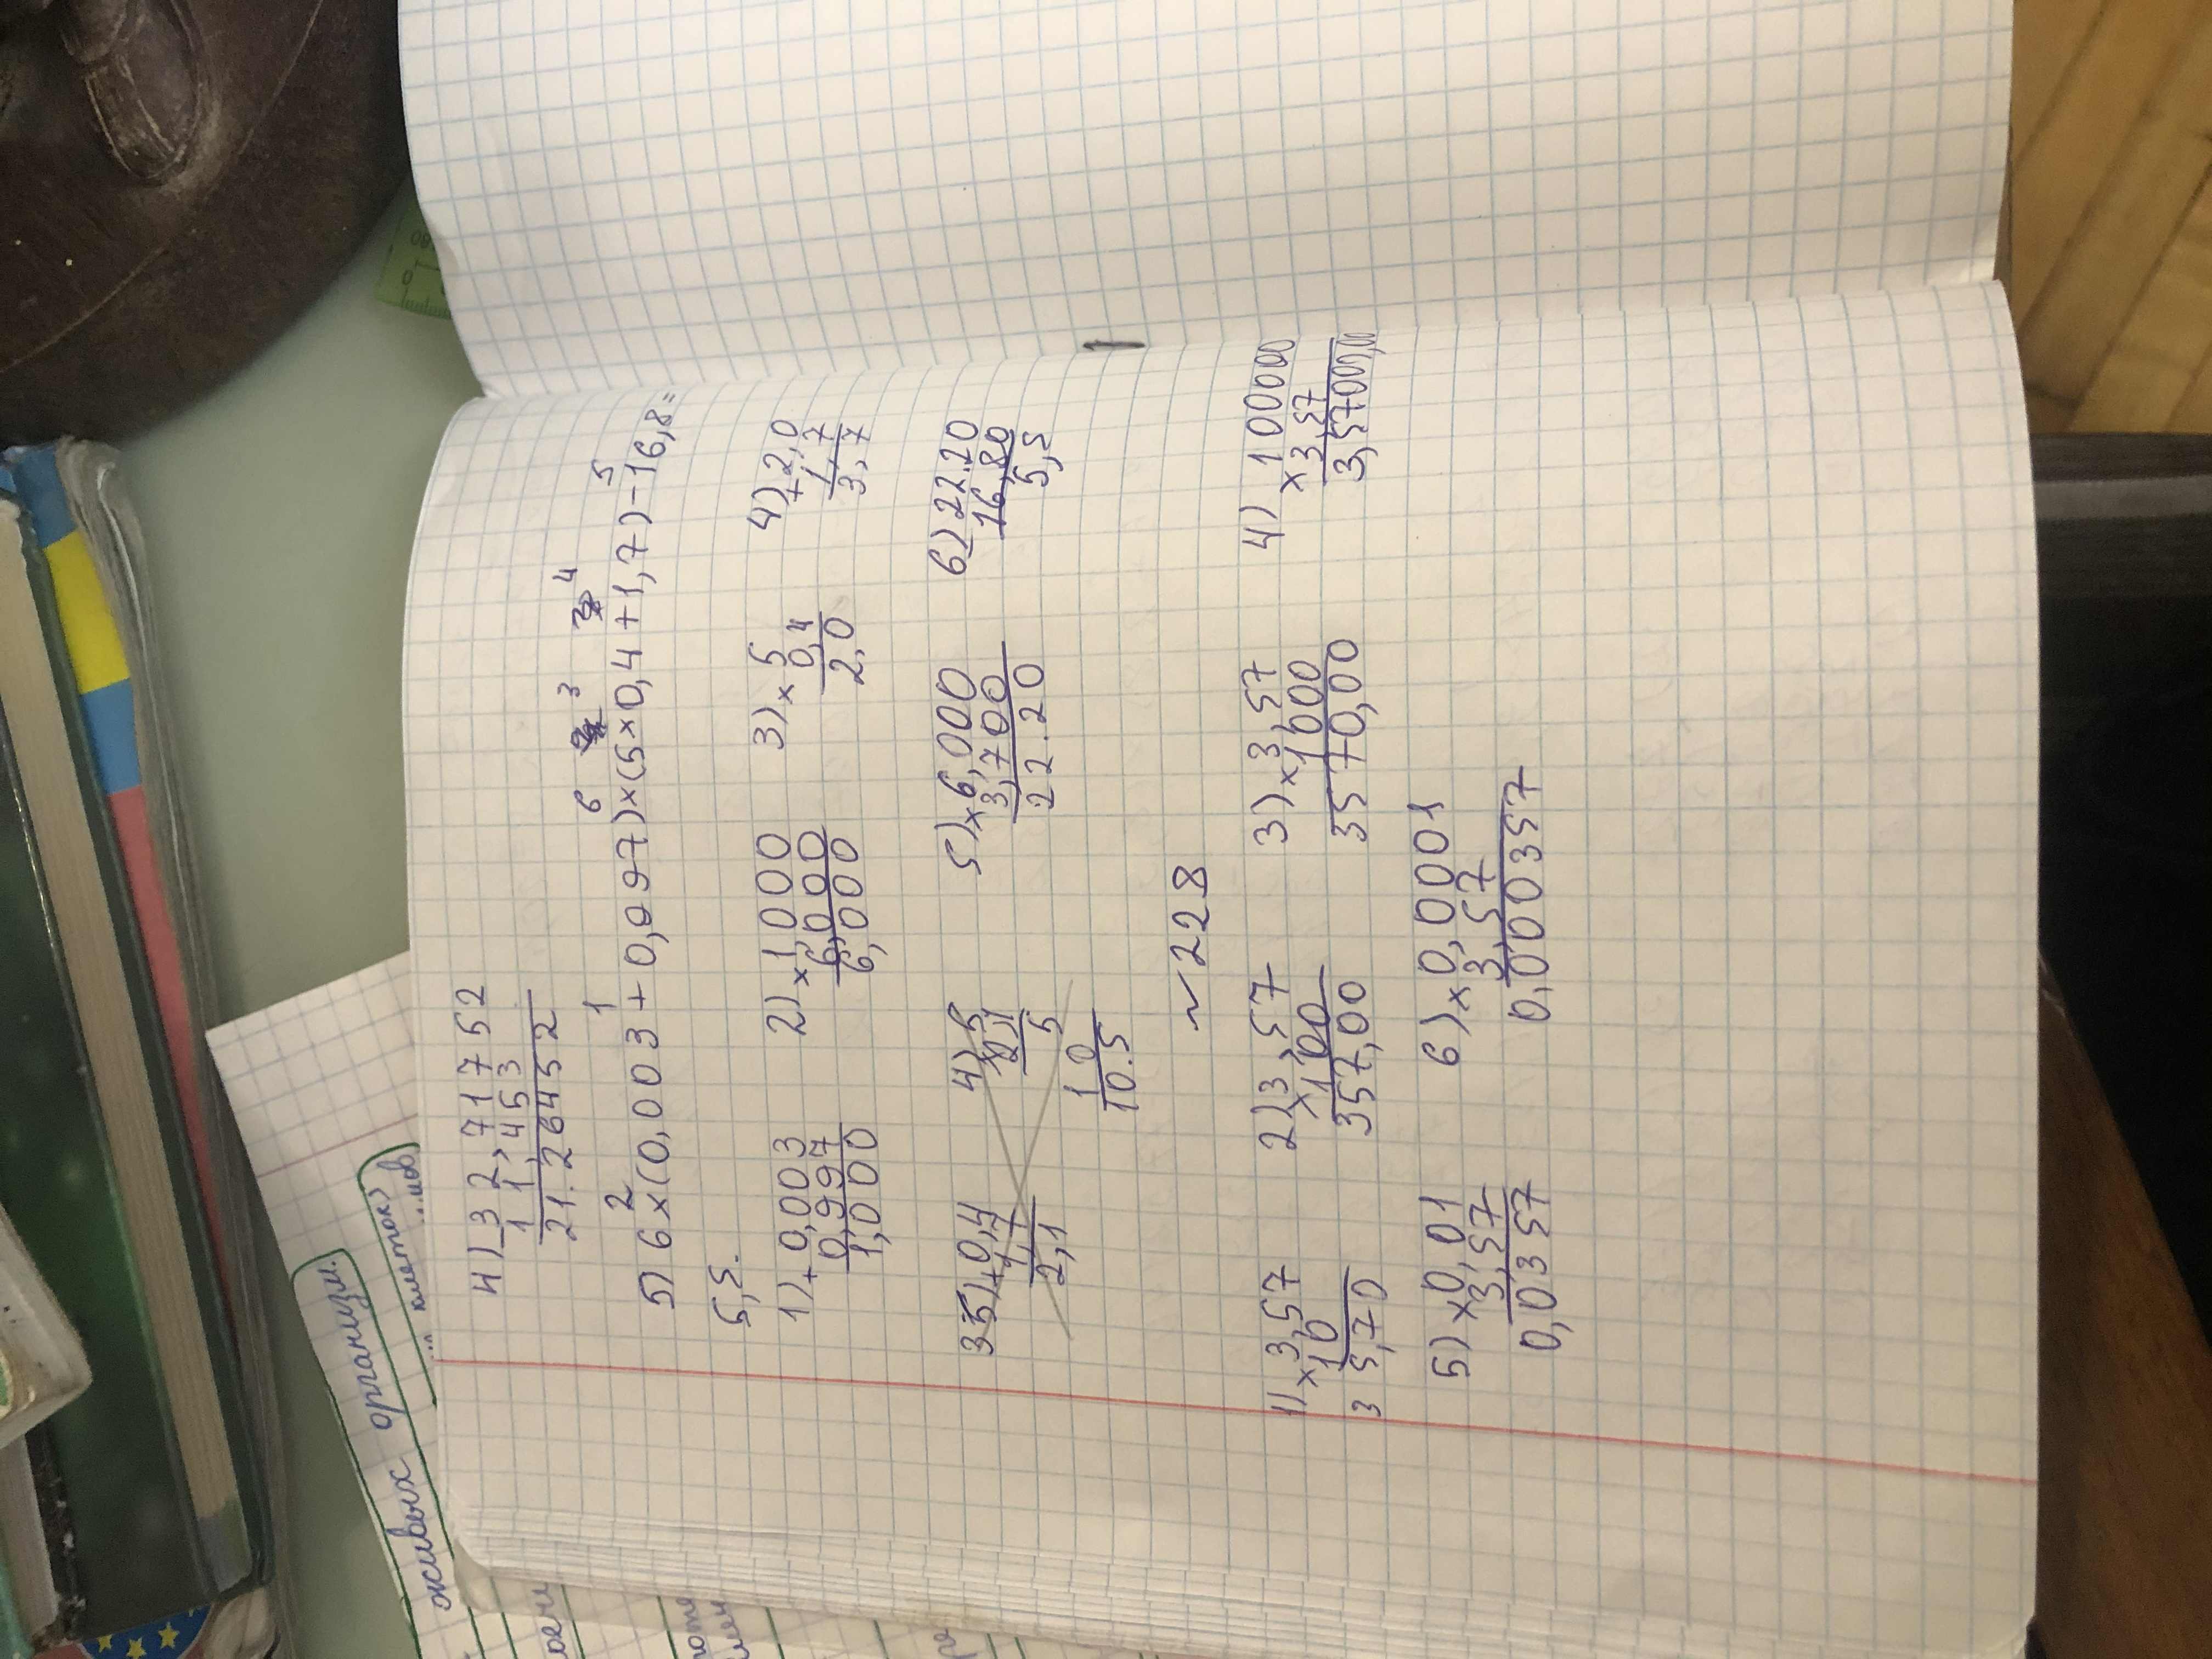 4) _ 32,71752
11,453
21.26452
5) 6 × (0,003 + 0,997) × (5 × 0,4 + 1,7) - 16,8 =
2 1 6 3 4 5
5,5.
1) + 0,003
0,997
1,000
2) × 1,000
6,000
6,000
3) × 5
0,4
2,0
4) + 2,0
1,7
3,7
5) × 6,000
3,700
22.20
6) _ 22.20
16,80
5,5
4) × 5
2,1
5
10
10.5
2,1
~228
1) × 3,57
10
35,70
2) 3,57
× 100
357,00
3) × 3,57
1000
3570,00
4) 100000
× 3,57
5) × 0,01
3,57
0,0357
6) × 0,0001
3,57
0,000357
живых организм.
клеток